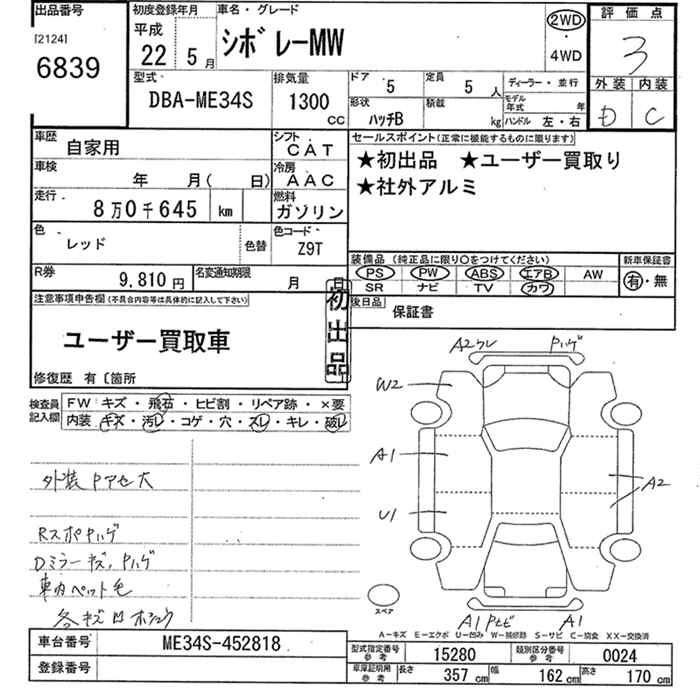 出品番号
[2124]
6839
初度登録年月
平成
22 5 月
車名・グレード
シボレーMW
2WD
・
4WD
評価点
3
外装 内装
D C
型式
DBA-ME34S
排気量
1300
cc
ドア
5
定員
5 人
ディーラー・並行
形状
ハッチB
積載
kg
モデル年式 年
ハンドル 左・右
車歴
自家用
シフト
CAT
車検
年 月( 日)
冷房
AAC
走行
8万0千645 km
燃料
ガソリン
色
レッド
色替
色コード
Z9T
R券
9,810 円
名変通知期限
月 日
セールスポイント(正常に機能するものに限ります)
★初出品 ★ユーザー買取り
★社外アルミ
装備品 (純正品に限り○をつけてください)
PS PW ABS エアB AW
SR ナビ TV カワ
新車保証書
有・無
後日品
保証書
注意事項申告欄(不具合内容等は具体的に記入して下さい)
ユーザー買取車
初出品
修復歴 有〔箇所
検査員
記入欄
FW キズ・飛石・ヒビ割・リペア跡・×要
内装 キズ・汚レ・コゲ・穴・スレ・キレ・破レ
外装Pアセ大
RスポPハゲ
Dミラーキズ,Pハゲ
車内ペット毛
A2ワレ Pハゲ
W2
A1
U1
A2
スペア
A1 Pトビ A1
A−キズ E−エクボ U−凹み W−補修跡 S−サビ C−腐食 XX−交換済
車台番号
ME34S-452818
登録番号
型式指定番号
参考
15280
類別区分番号
参考
0024
車庫証明用
参考
長さ
357 cm
幅
162 cm
高さ
170 cm